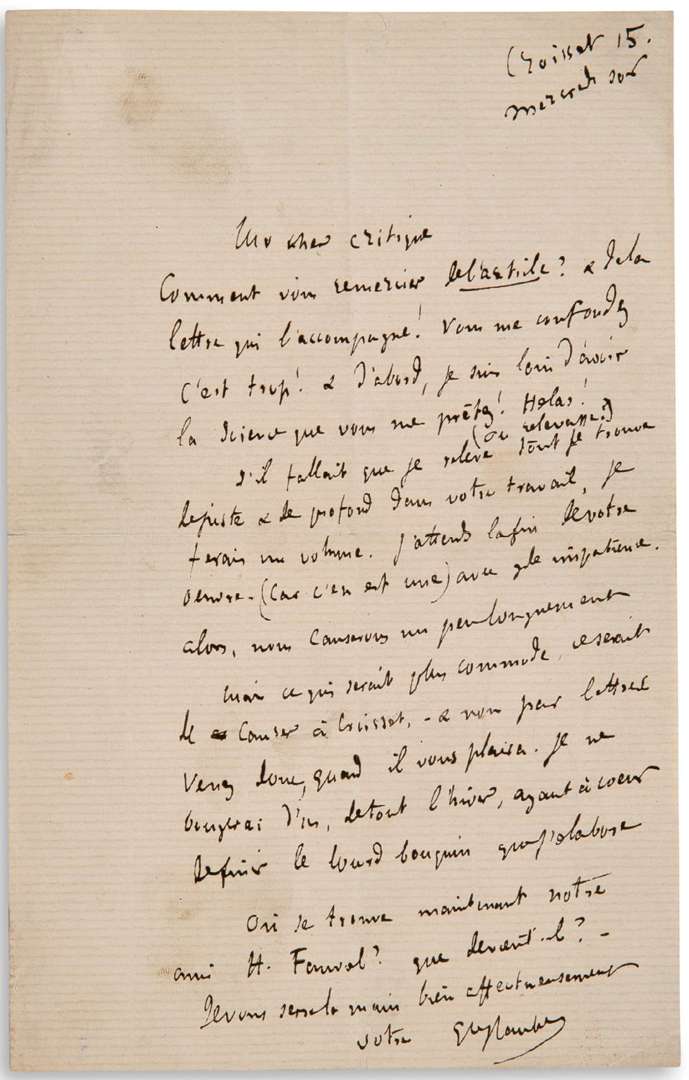 Croisset 15.
mercredi soir
Mon cher critique
Comment vous remercier de l'article ? & de la
lettre qui l'accompagne ! Vous me confondez
C'est trop ! & d'abord, je suis loin d'avoir
la science que vous me prêtez ! Hélas !
(ou relevasse ?)
S'il fallait que je relève tout ce que je trouve
de juste & de profond dans votre travail, je
ferais un volume. J'attends la fin de votre
oeuvre - (car c'en est une) avec gde impatience.
alors, nous causerons un peu longuement
mais ce qui serait plus commode, ce serait
de causer à Croisset, - & non par lettres
Venez donc, quand il vous plaira. Je ne
bougerai d'ici, de tout l'hiver, ayant à coeur
de finir le lourd bouquin que j'élabore
Où se trouve maintenant notre
ami H. Fauvel ? que devient-il ? -
Je vous serre la main bien affectueusement
votre Gve Flaubert